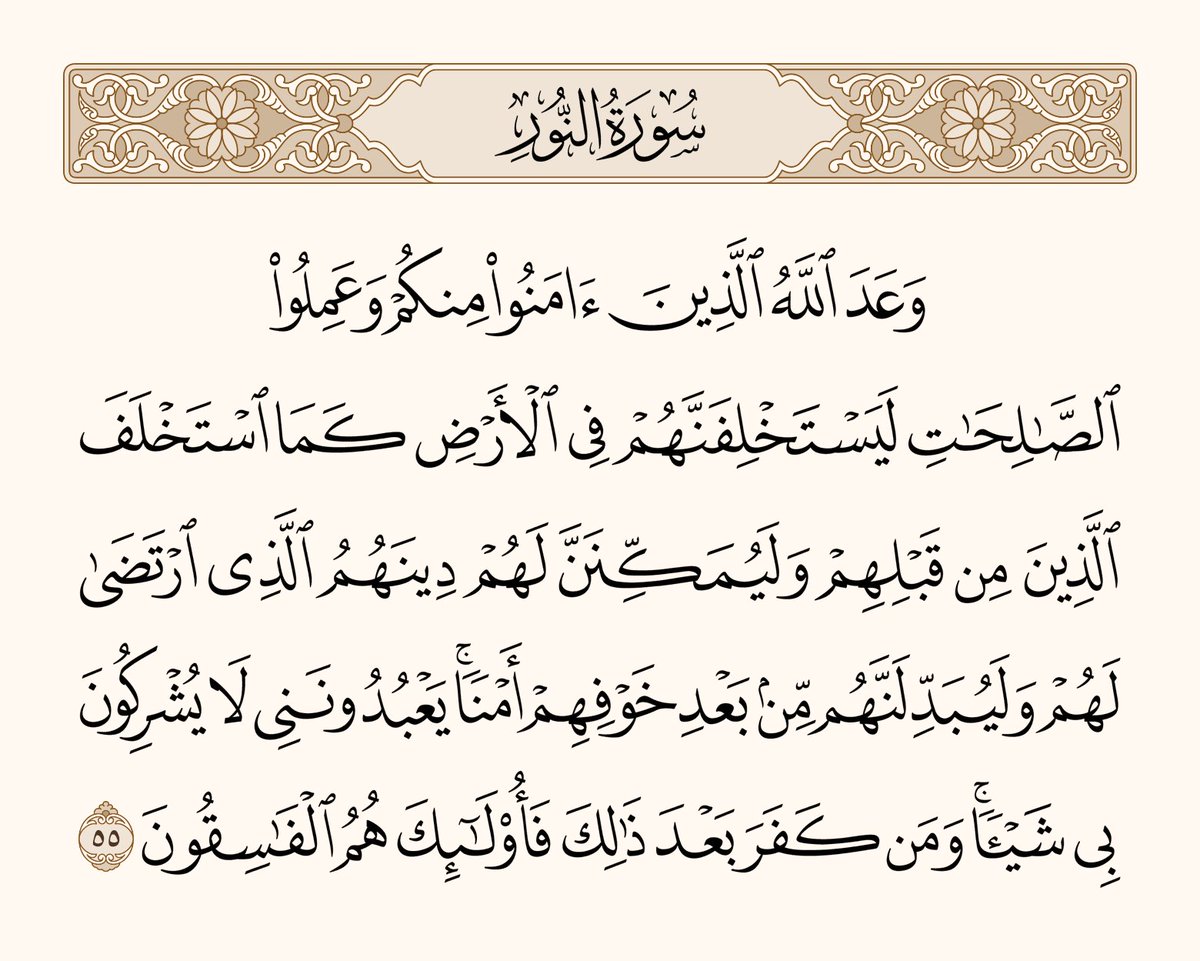 سُورَةُ النُّورِ
وَعَدَ ٱللَّهُ ٱلَّذِينَ ءَامَنُوا۟ مِنكُمْ وَعَمِلُوا۟
ٱلصَّـٰلِحَـٰتِ لَيَسْتَخْلِفَنَّهُمْ فِى ٱلْأَرْضِ كَمَا ٱسْتَخْلَفَ
ٱلَّذِينَ مِن قَبْلِهِمْ وَلَيُمَكِّنَنَّ لَهُمْ دِينَهُمُ ٱلَّذِى ٱرْتَضَىٰ
لَهُمْ وَلَيُبَدِّلَنَّهُم مِّنۢ بَعْدِ خَوْفِهِمْ أَمْنًا ۚ يَعْبُدُونَنِى لَا يُشْرِكُونَ
بِى شَيْـًٔا ۚ وَمَن كَفَرَ بَعْدَ ذَٰلِكَ فَأُو۟لَـٰٓئِكَ هُمُ ٱلْفَـٰسِقُونَ ٥٥